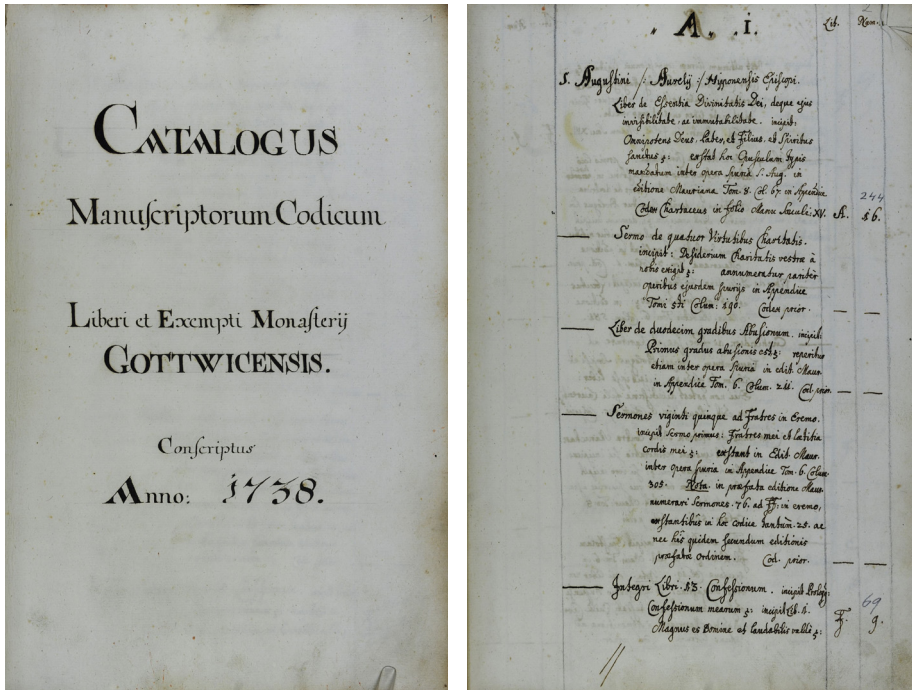 CATALOGUS
Manuſcriptorum Codicum
Liberi et Exempti Monaſterij
GOTTWICENSIS.
Conſcriptus
Anno: 1738.
A. i. Lit. Num.
S. Augustini /: Aurelij :/ Hyponensis Episcopi.
Liber de Essentia Divinitatis Dei, deque ejus
invisibilitate, ac immutabilitate. incipit:
Omnipotens Deus, Pater, et Filius, et Spiritus
sanctus: exstat hoc Opusculum typis
mandatum inter opera spuria S. Aug. in
editione Mauriana Tom. 8. Col. 67. in Appendice
244
Codex Chartaceus in folio Manu Sæculi XV. A. 16.
— Sermo de quatuor Virtutibus Charitatis.
incipit: Desiderium Charitatis vestræ à
nobis exigit: annumeratur pariter
operibus ejusdem spurijs in Appendice
Tomi 5ti Colum: 190. Codex prior. — —
— Liber de duodecim gradibus Abusionum. incipit:
Primus gradus abusionis est: reperitur
etiam inter opera spuria in edit. Maur.
in Appendice Tom. 6. Colum. 211. Cod. prior. — —
— Sermones viginti quinque ad Fratres in Eremo.
incipit Sermo primus: Fratres mei et lætitia
cordis mei: exstant in Edit. Maur.
inter opera spuria in Appendice Tom. 6. Colum.
305. Nota. in præfata editione Maur.
numerari Sermones. 76. ad FF: in eremo,
exstantibus in hoc codice tantum. 25. ac
nec his quidem secundum editionis
præfatæ ordinem. Cod. prior. — —
— Integri Libri. 13. Confessionum. incipit Prolog:
69
Confessionum mearum: incipit Lib. 1. F. 9.
Magnus es Domine et laudabilis valde: